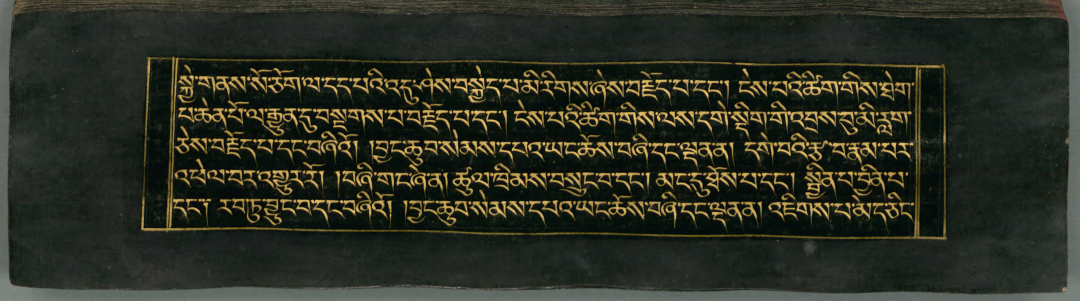 སྐྱེ་གནས་སོ་ཅོག་ལ་དད་པའི་འདུ་ཤེས་བསྐྱེད་པ་མི་རིགས་ཞེས་བརྗོད་པ་དང་། ངེས་པའི་ཚིག་གིས་ཐེག་
པ་ཆེན་པོ་ལ་རྒྱུན་དུ་བསྔགས་པ་བརྗོད་པ་དང་། ངེས་པའི་ཚིག་གིས་ལས་དགེ་སྡིག་གི་འབྲས་བུ་མི་རླག་
ཅེས་བརྗོད་པ་དང་བཞིའོ། །བྱང་ཆུབ་སེམས་དཔའ་ཡང་ཆོས་བཞི་དང་ལྡན་ན། དགེ་བའི་རྩ་བ་རྣམ་པར་
འཕེལ་བར་འགྱུར་རོ། །བཞི་གང་ཞེ་ན། ཚུལ་ཁྲིམས་བསྲུང་བ་དང་། མང་དུ་ཐོས་པ་དང་། སྦྱིན་པ་བྱིན་པ་
དང་། རབ་ཏུ་བྱུང་བ་དང་བཞིའོ། །བྱང་ཆུབ་སེམས་དཔའ་ཡང་ཆོས་བཞི་དང་ལྡན་ན། འཇིགས་པ་མེད་ཅིང་